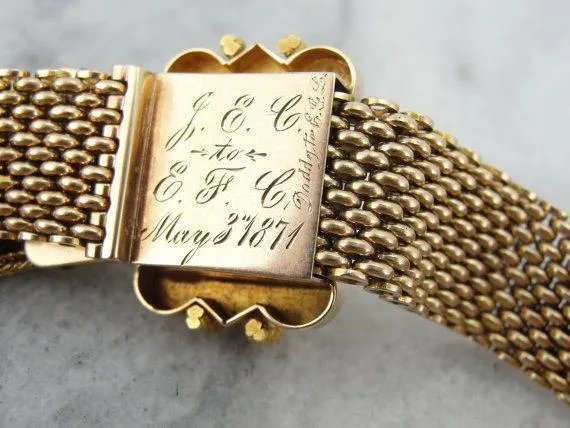 J. E. C.
to
E. F. C,
May 3rd 1871
Daddy to